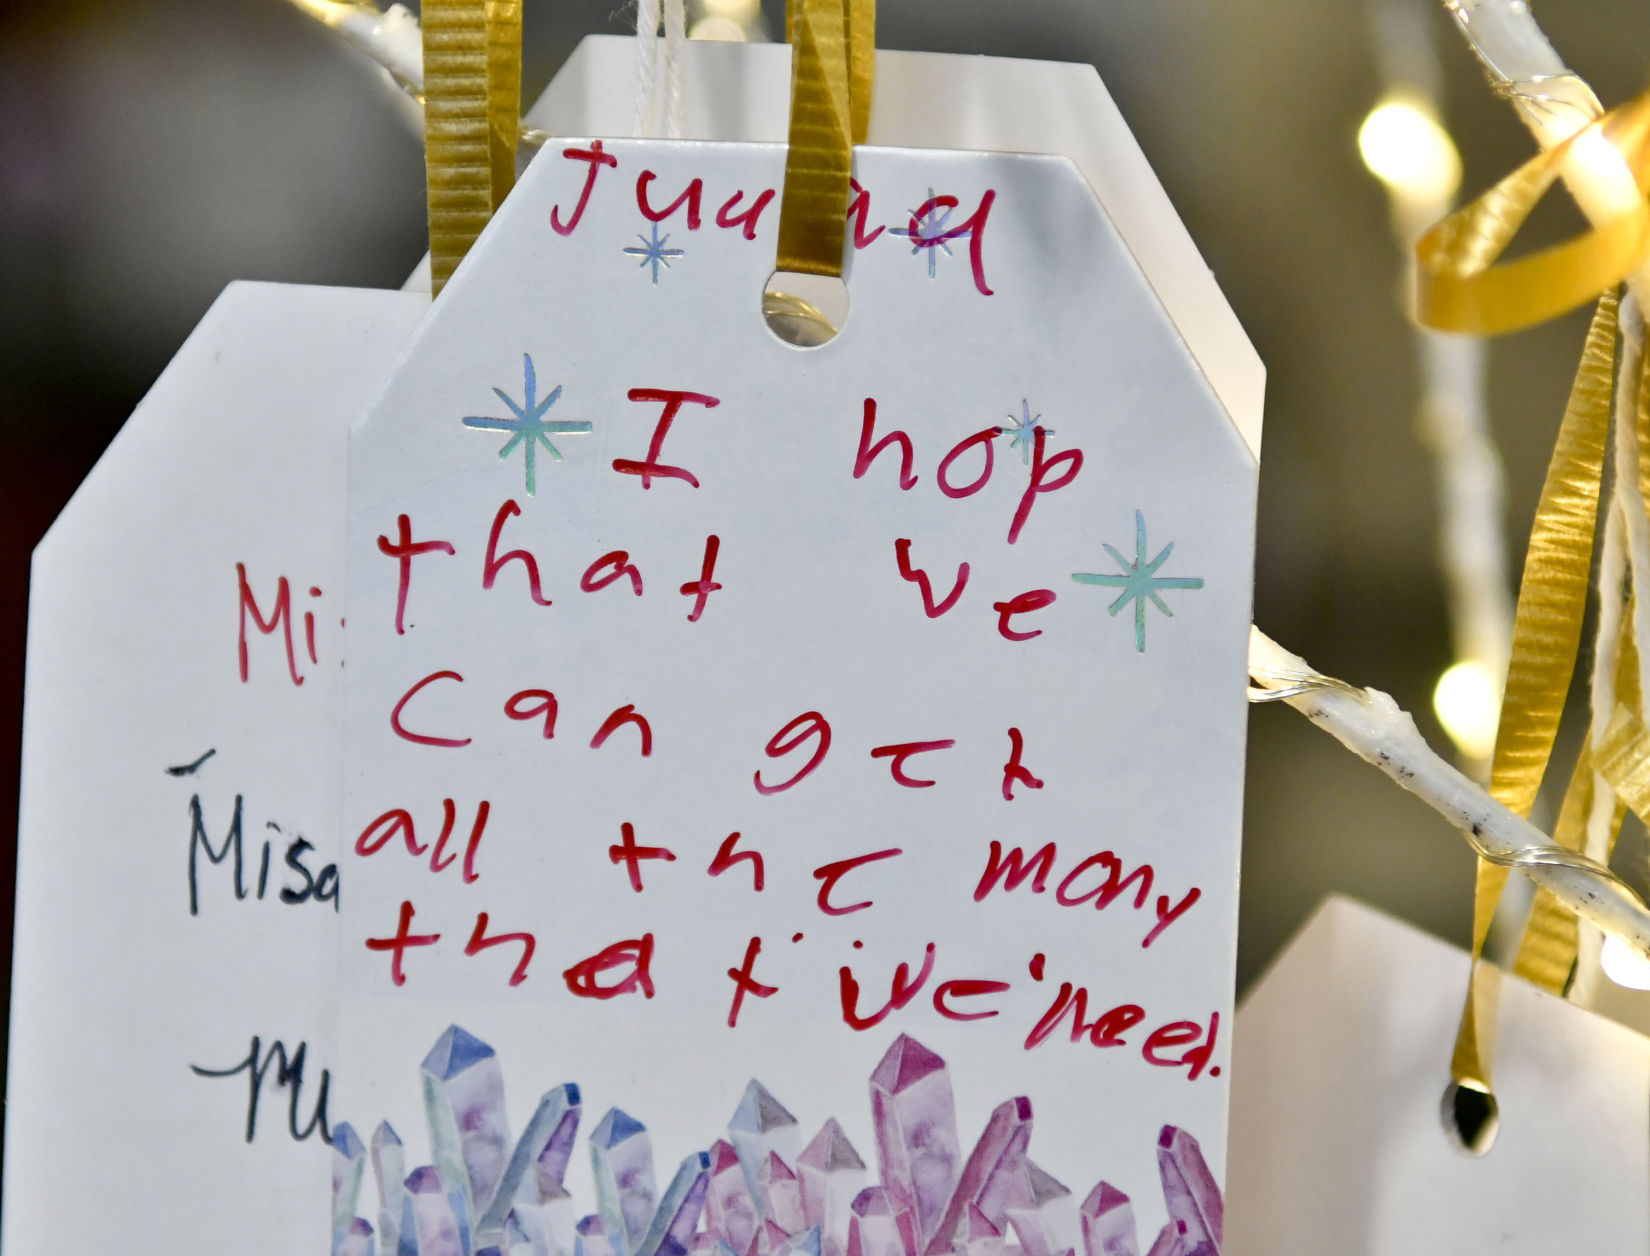 I hop
that we
can get
all the mony
that we need.
Mi
Misa